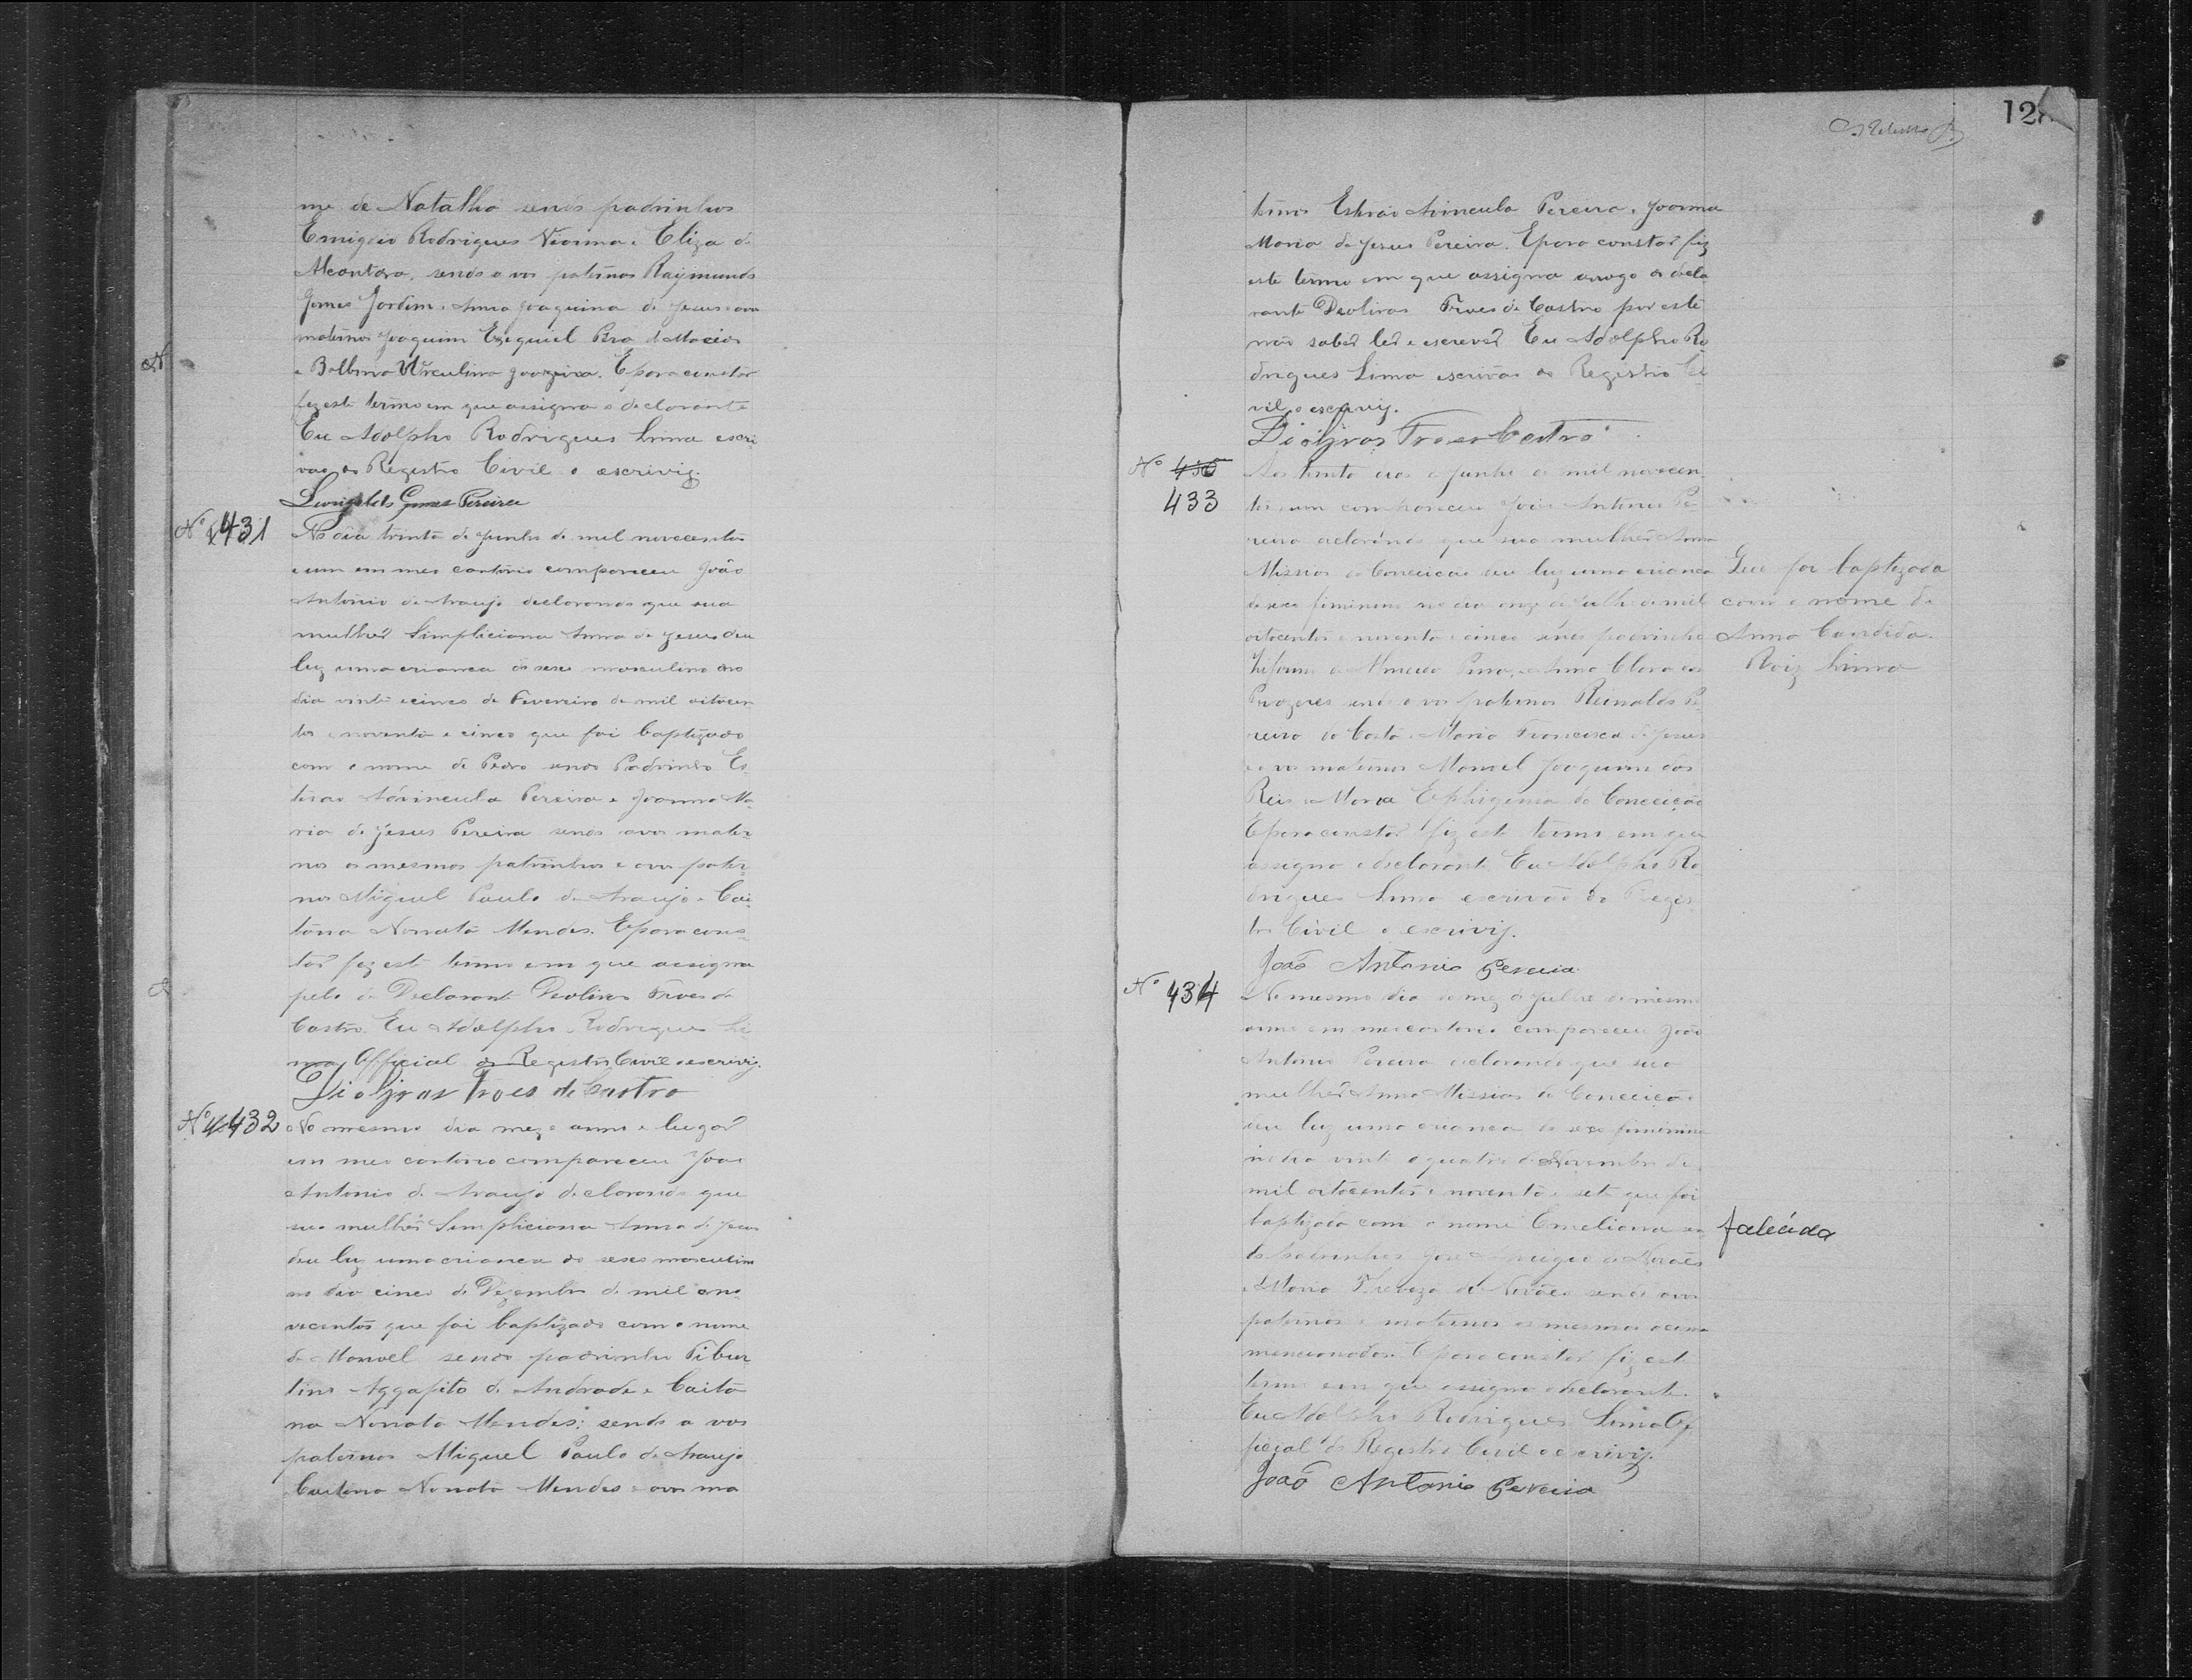 me de Natalha sendo padrinhos
Emigdio Rodrigues Vianna e Eliza de
Alcantara, sendo avos paternos Raymundo
Gomes Jardim e Anna Joaquina de Jesus e avos
maternos Joaquim Ezequiel Pra de Macedo
e Balbina Urculina. E para constar
fiz este termo em que assigna o declarante
Eu Adolpho Rodrigues Lima escri
vão do Registro Civil o escrivij.
Gomes Pereira
Nº 431
No dia trinta de Junho de mil novecentos
e um em meu cartorio compareceu João
Antonio de Araujo declarando que sua
mulher Simpliciana Anna de Jesus deu
luz uma crianca do sexo masculino no
dia vinte e cinco de Fevereiro de mil oitocen
tos e noventa e cinco que foi baptizado
com o nome de Pedro sendo Padrinho Es
tevão Advincula Pereira e Joanna Ma
ria de Jesus Pereira sendo avos mater
nos os mesmos patrinhos e avos pater
nos Miguel Paulo de Araujo e Cai
tana Nonata Mendes. E para cons
tar fiz este termo em que assigna
pelo do Declarante Deoliros Froes de
Castro. Eu Adolpho Rodrigues Li
ma Official do Registro Civil o escrivij.
Diolyras Froes de Castro
Nº 432
No mesmo dia mez e anno e lugar
em meu cartorio compareceu João
Antonio de Araujo declarando que
sua mulher Simpliciana Anna de Jesus
deu luz uma crianca do sexo masculino
no dia cinco de Dezembro de mil e no
vecentos que foi baptizado com o nome
de Manoel sendo padrinho Tibur
tino Aggapito de Andrade e Caita
na Nonata Mendes; sendo avos
paternos Miguel Paulo de Araujo
Caetana Nonata Mendes e avos ma
128
ternos Estevão Avincula Pereira e Joanna
Maria de Jesus Pereira. E para constar fiz
este termo em que assigna arogo do decla
rante Deoliros Froes de Castro por este
não saber ler e escrever. Eu Adolpho Ro
drigues Lima escrivão do Registro Ci
vil o escrivij.
Diolyras Froes Castro
Nº 430
433
Aos trinta dias de Junho de mil novecen
tos e um compareceu João Antonio Pe
reira declarando que sua mulher Anna
Missias da Conceicão deu luz uma crianca
do sexo feminino no dia onze de Julho de mil
oitocentos e noventa e cinco sendo padrinho
de Almeida e Anna Clara dos
Prazeres sendo avos paternos Reinaldo Pe
reira da Costa e Maria Francisca de Jesus
e avos maternos Manoel Joaquim dos
Reis e Maria Ephigenia da Conceição
E para constar fiz este termo em que
assigna o declarante. Eu Adolpho Ro
drigues Lima escrivão do Regis
tro Civil o escrivij.
João Antonio Pereira
Que foi baptizada
com o nome de
Anna Candida.
Roiz Lima
Nº 434
No mesmo dia do mez de Julho do mesmo
anno em meu cartorio compareceu João
Antonio Pereira declarando que sua
mulher Anna Missias da Conceição
deu luz uma crianca do sexo feminino
no dia vinte e quatro de Novembro de
mil oitocentos e noventa e sete que foi
baptizada com o nome Emeliana sen
do padrinhos José de Novaes
e Maria de Novaes sendo avos
paternos e maternos os mesmos acima
mencionados. E para constar fiz este
termo em que assigna o declarante.
Eu Adolpho Rodrigues Lima Of
ficial do Registro Civil o escrivij.
João Antonio Pereira
falecida